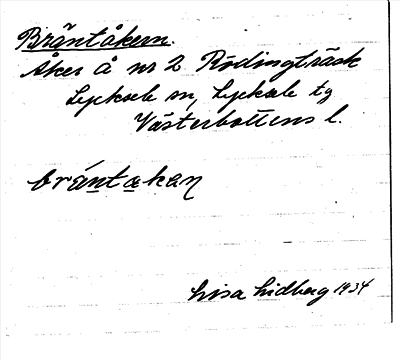 Bräntåkern.
Åker å nr 2 Rödingträsk
Lycksele sn, Lycksele tg
Västerbottens l.
bräntakaη
Lisa Lidberg 1934